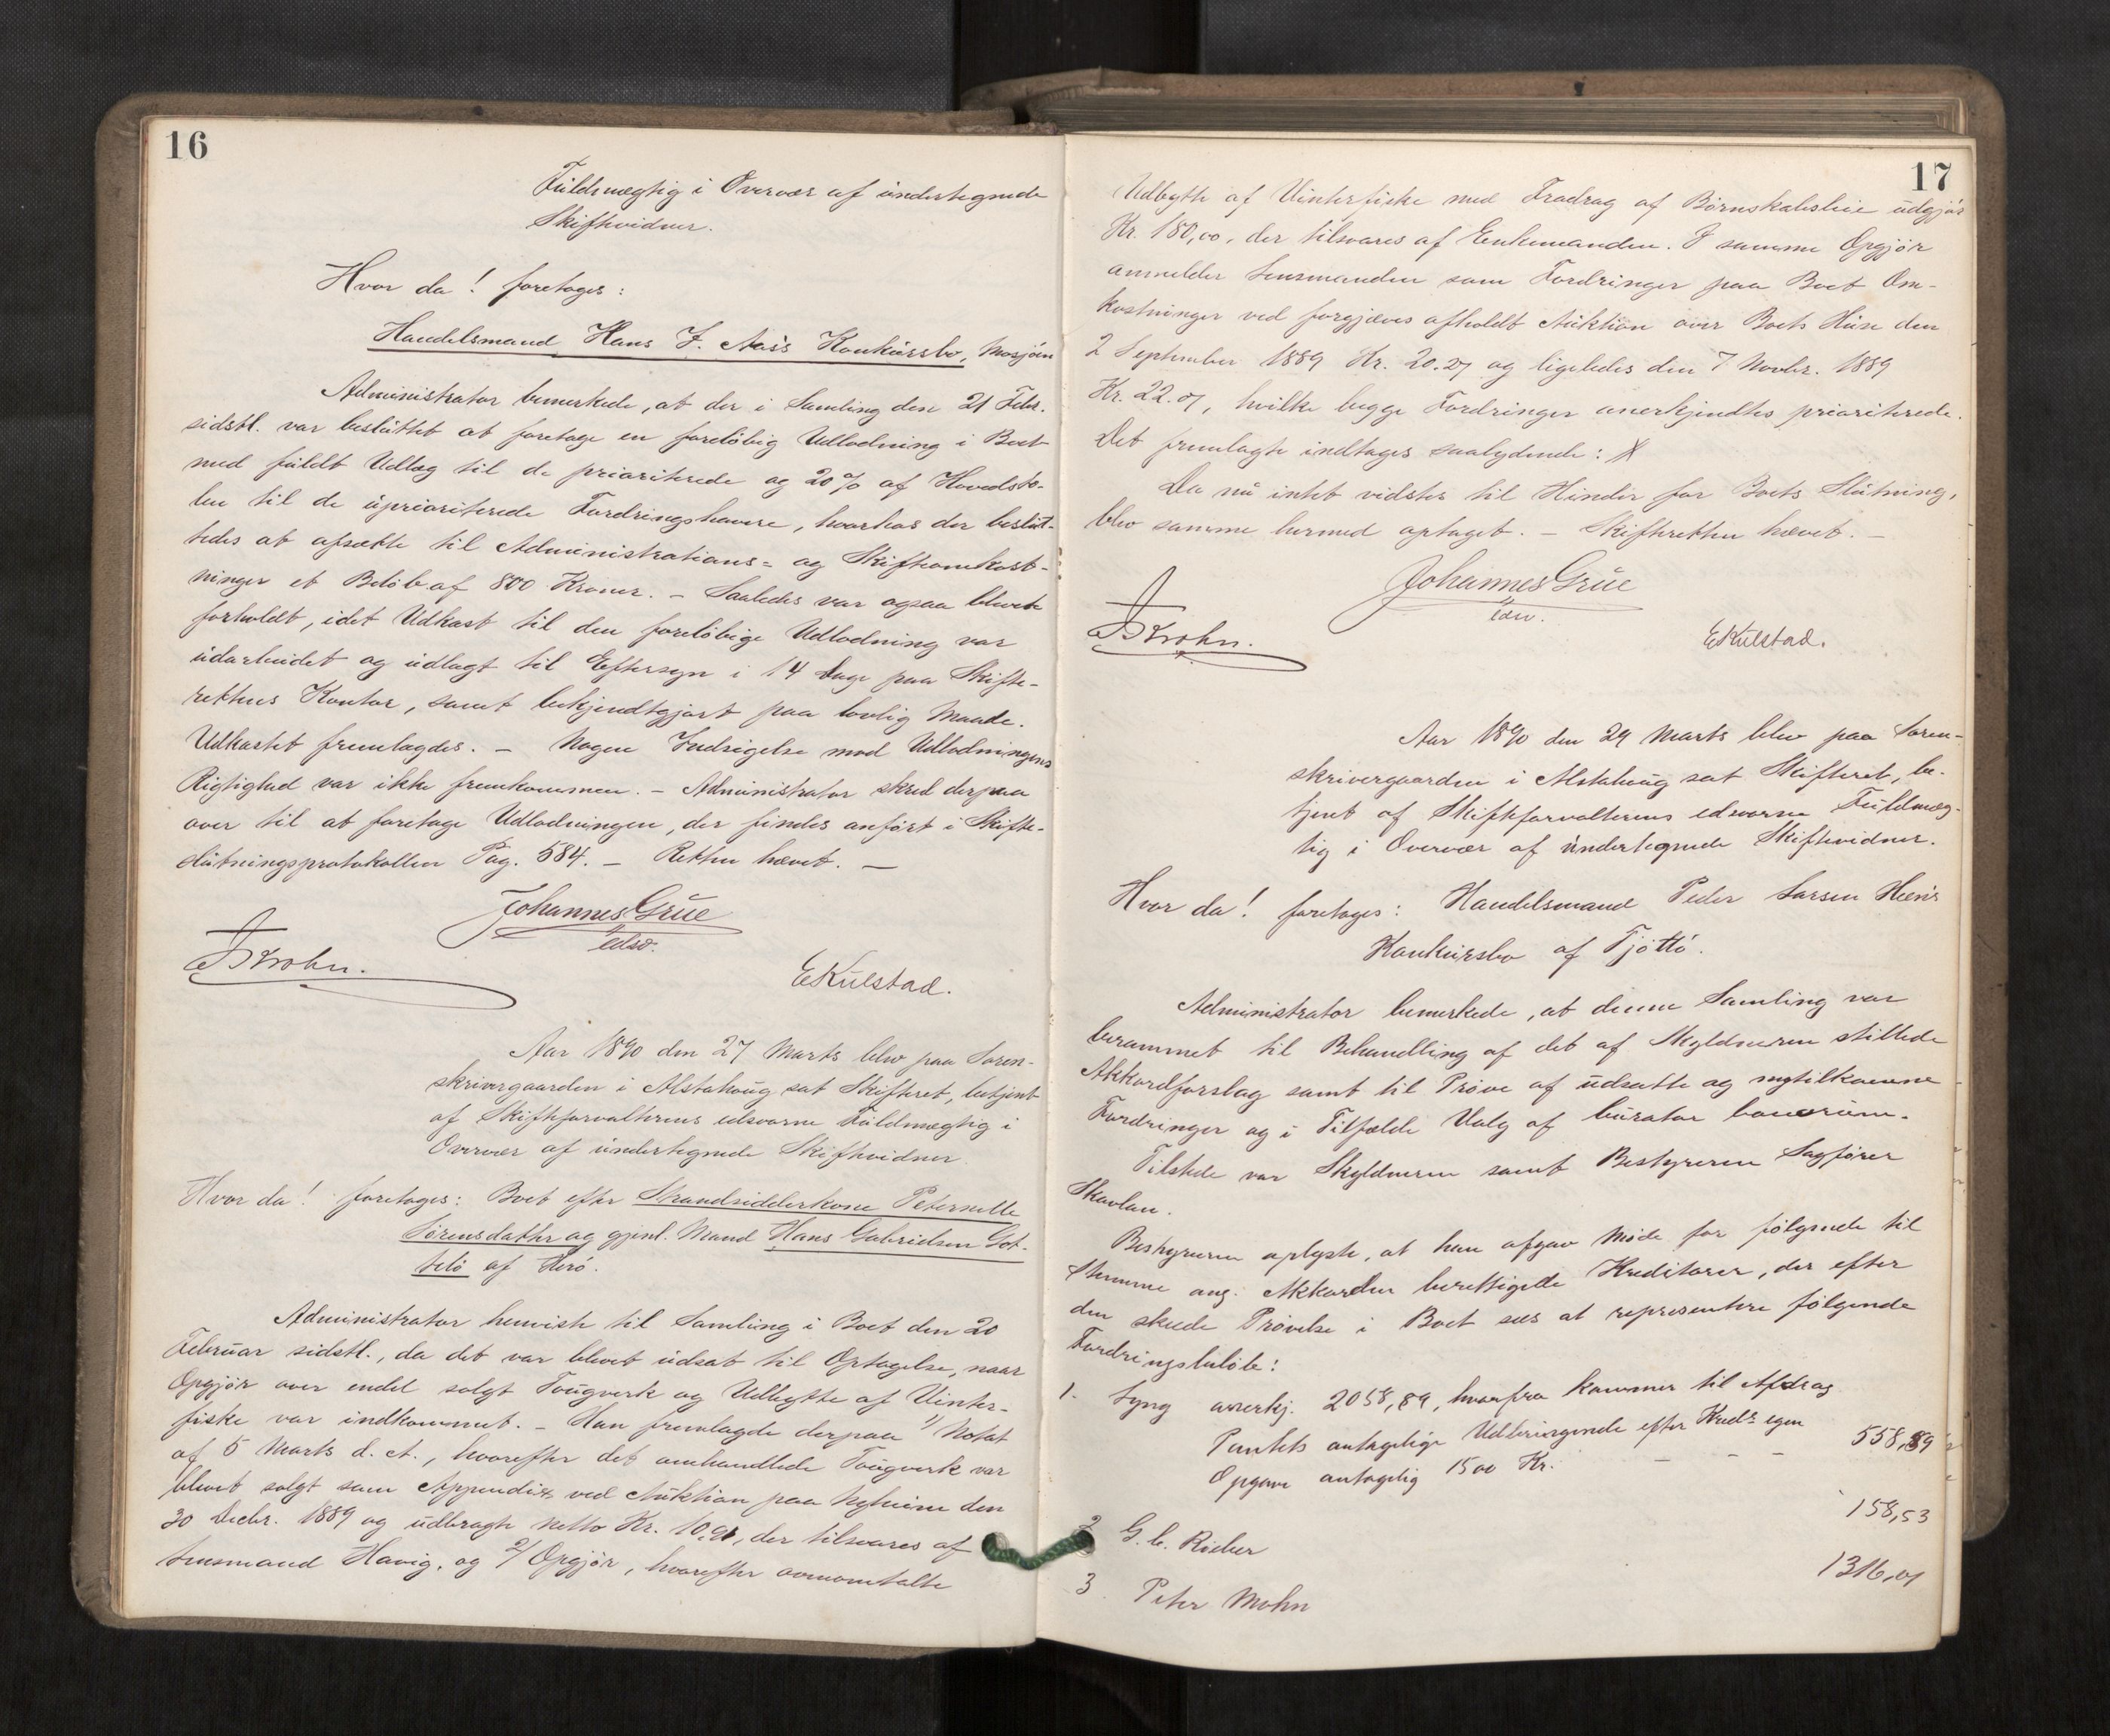 16
Fuldmægtig i Overvær af undertegnede
Skiftevidner.
Hvor da! foretoges:
Handelsmand Hans J. Aas's Konkursbo, Mosjøen
Administrator bemerkede, at der i Samling den 21 Febr.
sidstl. var besluttet at foretage en foreløbig Udlodning i Boet
med fuldt Udlæg til de prioriterede og 20% af Hovedsto-
len til de uprioriterede Fordringshavere, hvorhos der beslut-
tedes at afsætte til Administrations- og Skifteomkost-
ninger et Beløb af 800 Kroner. – Saaledes var ogsaa blevet
forholdt, idet Udkast til den foreløbige Udlodning var
udarbeidet og udlagt til Eftersyn i 14 Dage paa Skifte-
rettens Kontor, samt bekjendtgjort paa lovlig Maade.
Udkastet fremlagdes. – Nogen Indsigelse mod Udlodningens
Rigtighed var ikke fremkommen. – Administrator skred derpaa
over til at foretage Udlodningen, der findes anført i Skifte-
slutningsprotokollen Pag. 584. – Retten hævet. –
Johannes Grüe
edsv.
J Krohn.
E Kulstad.
Aar 1890 den 27 Marts blev paa Soren-
skrivergaarden i Alstahoug sat Skifteret, betjent
af Skifteforvalterens edsvorne Fuldmægtig i
Overvær af undertegnede Skiftevidner.
Hvor da! foretoges: Boet efter Strandsidderkone Peternelle
Sørensdatter og gjenl. Mand Hans Gabrielsen Got-
telø af Herø.
Administrator henviste til Samling i Boet den 20
Februar sidstl., da det var blevet udsat til Optagelse, naar
Opgjør over endel solgt Tougverk og Udbytte af Vinter-
fiske var indkommet. – Han fremlagde derpaa 1/ Notat
af 5 Marts d. A., hvorefter det omhandlede Tougverk var
blevet solgt som Appendix ved Auktion paa Nyheim den
30 Decbr. 1889 og udbragte netto Kr. 10,90, der tilsvares af
Lensmand Havig, og 2/ Opgjør, hvorefter ovenomtalte
17
Udbytte af Vinterfiske med Fradrag af Børnskabsleie udgjør
Kr. 180,00, der tilsvares af Enkemanden. I samme Opgjør
anmelder Lensmanden som Fordringer paa Boet Om-
kostninger ved forgjæves afholdt Auktion over Boets Huse den
2 September 1889 Kr. 20.27 og ligeledes den 7 Novbr. 1889
Kr. 22.07, hvilke begge Fordringer anerkjendtes prioriterede.
Det fremlagte indtages saalydende:
Da nu intet vidstes til Hinder for Boets Slutning,
blev samme hermed optaget. – Skifteretten hævet. –
Johannes Grüe
edsv.
J Krohn.
E Kulstad.
Aar 1890 den 29 Marts blev paa Soren-
skrivergaarden i Alstahoug sat Skifteret, be-
tjent af Skifteforvalterens edsvorne Fuldmæg-
tig i Overvær af undertegnede Skiftevidner.
Hvor da! foretoges: Handelsmand Peder Larsen
Konkursbo af Tjøttø.
Administrator bemerkede, at denne Samling var
berammet til Behandling af det af Skyldneren stillede
Akkordforslag samt til Prøve af udsatte og nytilkomne
Fordringer og i Tilfælde Valg af curator bonorum.
Tilstede var Skyldneren samt Bestyreren Sagfører
Skavlan.
Bestyreren oplyste, at han afgav Møde for følgende til
Stemme ang. Akkorden berettigede Kreditorer, der efter
den skede Prøvelse i Boet sees at representere følgende
Fordringsbeløb:
1. Lyng anerkj. 2058,89, hvorfra kommer til Afdrag
Pantets antagelige Udbringende efter Kreds egen
Opgave antagelig 1500 Kr. – – – 558,89
2 G. C. Rieber 158,53
3 Peter Mohn 1316,01